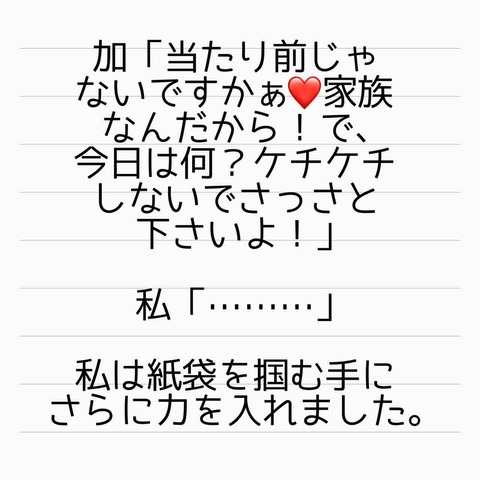 加「当たり前じゃ
ないですかぁ❤️家族
なんだから！で、
今日は何？ケチケチ
しないでさっさと
下さいよ！」
私「………」
私は紙袋を掴む手に
さらに力を入れました。